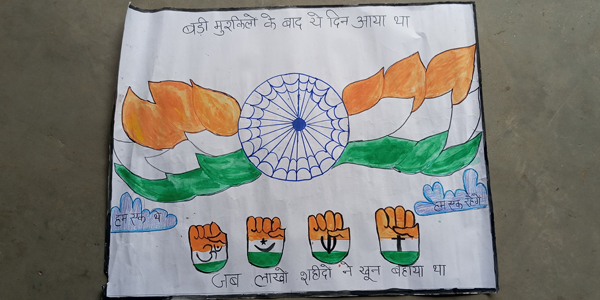 बड़ी मुश्किलो के बाद ये दिन आया था
हम एक थे
हम एक रहेंगे
ॐ
जब लाखो शहीदो ने खून बहाया था